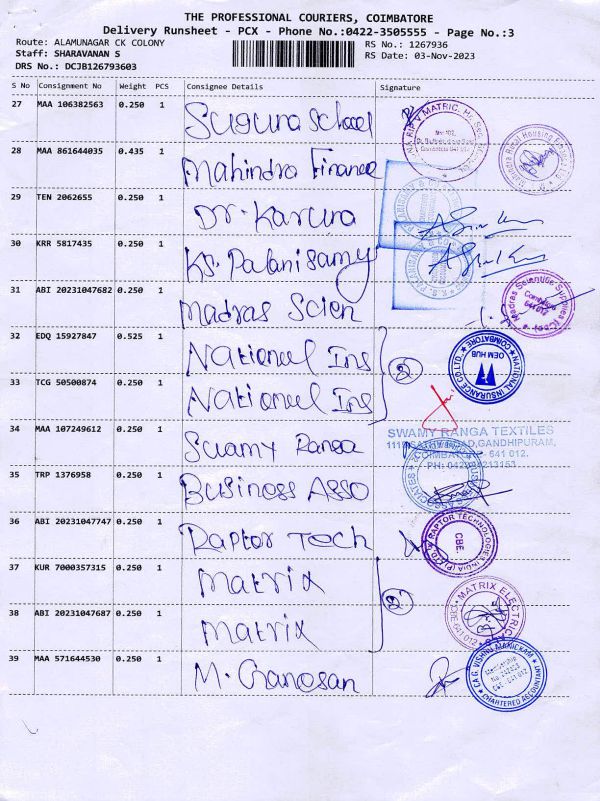 THE PROFESSIONAL COURIERS, COIMBATORE
Delivery Runsheet - PCX - Phone No.:0422-3505555 - Page No.:3
Route: ALAMUNAGAR CK COLONY RS No.: 1267936
Staff: SHARAVANAN S RS Date: 03-Nov-2023
DRS No.: DCJB126793603
S No Consignment No Weight PCS Consignee Details Signature
27 MAA 106382563 0.250 1 Suguna School
28 MAA 861644035 0.435 1 Mahindra Finance
29 TEN 2062655 0.250 1 Dr. Karuna
30 KRR 5817435 0.250 1 KS. Palanisamy
31 ABI 20231047682 0.250 1 Madras Scien
32 EDQ 15927847 0.525 1 National Ins
33 TCG 50500874 0.250 1 National Ins
34 MAA 107249612 0.250 1 Swamy Ranga
35 TRP 1376958 0.250 1 Business Asso
36 ABI 20231047747 0.250 1 Raptor Tech
37 KUR 7000357315 0.250 1 Matrix
38 ABI 20231047687 0.250 1 Matrix
39 MAA 571644530 0.250 1 M. Ganesan
MATRIC. Hr. Sec.
Coimbatore 641
Madras Scientific Supplies
Coimbatore
641 012
NATIONAL INSURANCE CO.LTD.
COIMBATORE
OEM HUB
2
SWAMY RANGA TEXTILES
ROAD, GANDHIPURAM,
COIMBATORE - 641 012.
RAPTOR TECHNOLOGIE
INDIA (P) LTD
CBE
2
MATRIX ELECTRICAL
CA G. VISHNU MANICKAM
CHARTERED ACCOUNTANT
Membership
CBE - 641 012